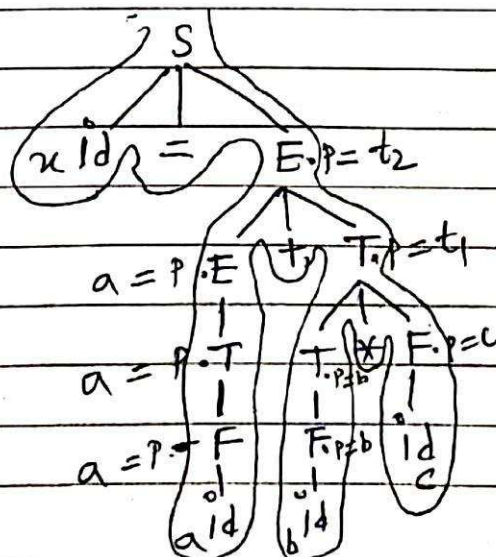 S
x id = E.p = t2
a = p.E + T.p = t1
a = p.T T.p=b * F.p=c
a = p.F F.p=b id c
a id b id